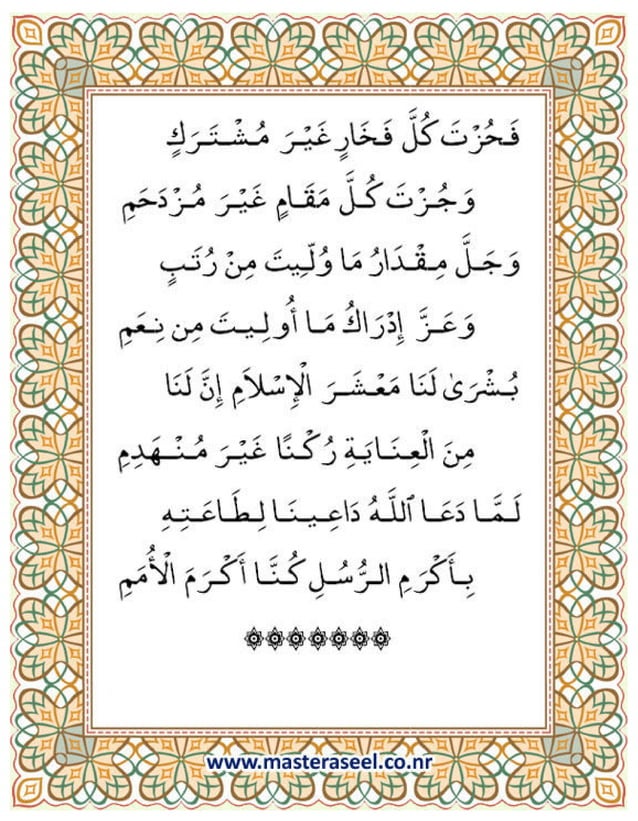 فَحُزْتَ كُلَّ فَخَارٍ غَيْرَ مُشْتَرَكٍ
وَجُزْتَ كُلَّ مَقَامٍ غَيْرَ مُزْدَحَمِ
وَجَلَّ مِقْدَارُ مَا وُلِّيتَ مِنْ رُتَبٍ
وَعَزَّ إِدْرَاكُ مَا أُولِيتَ مِن نِعَمِ
بُشْرَىٰ لَنَا مَعْشَرَ الْإِسْلَامِ إِنَّ لَنَا
مِنَ الْعِنَايَةِ رُكْنًا غَيْرَ مُنْهَدِمِ
لَمَّا دَعَا ٱللَّهُ دَاعِينَا لِطَاعَتِهِ
بِأَكْرَمِ الرُّسُلِ كُنَّا أَكْرَمَ الْأُمَمِ
www.masteraseel.co.nr